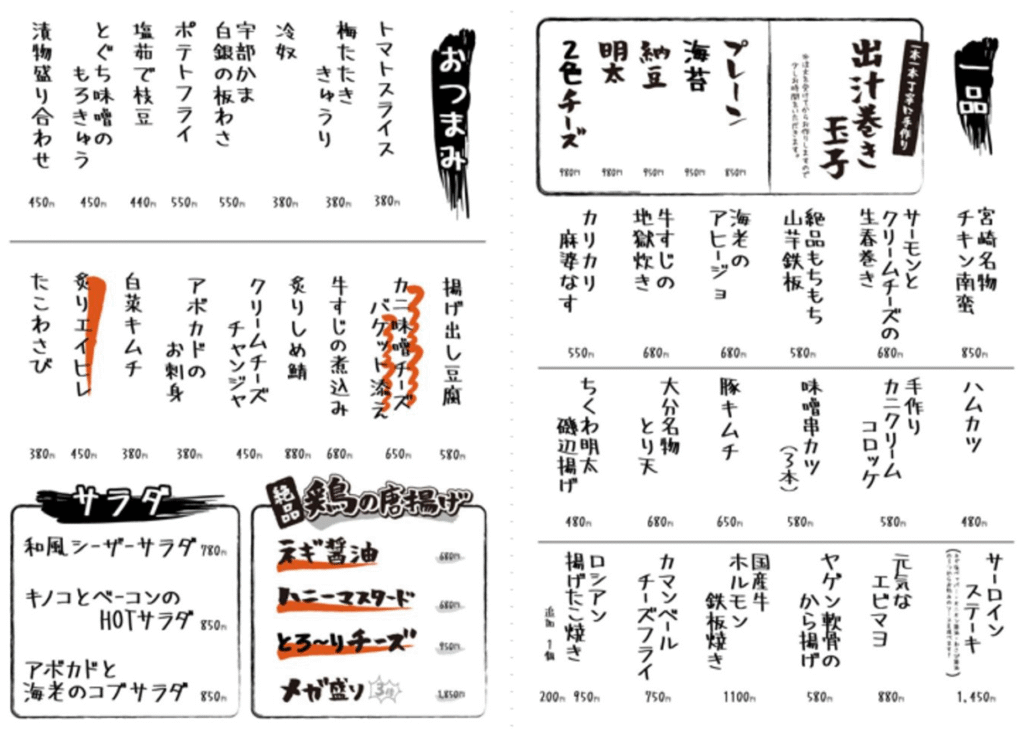 おつまみ
トマトスライス
380円
梅たたき
きゅうり
380円
冷奴
380円
宇部かま
白銀の板わさ
550円
ポテトフライ
550円
塩茹で枝豆
440円
とぐち味噌の
もろきゅう
450円
漬物盛り合わせ
450円
揚げ出し豆腐
580円
カニ味噌チーズ
バケット添え
650円
牛すじの煮込み
680円
炙りしめ鯖
880円
クリームチーズ
チャンジャ
450円
アボカドの
お刺身
380円
白菜キムチ
380円
炙りエイヒレ
450円
たこわさび
380円
サラダ
和風シーザーサラダ 780円
キノコとベーコンの
HOTサラダ 850円
アボカドと
海老のコブサラダ 850円
絶品 鶏の唐揚げ
ネギ醤油 680円
ハニーマスタード 680円
とろ〜りチーズ 950円
メガ盛り 3倍 1,850円
一品
一本一本丁寧に手作り
出汁巻き
玉子
※注文を受けてからお作りしますので
少しお時間をいただきます。
プレーン
850円
海苔
950円
納豆
950円
明太
980円
2色チーズ
980円
宮崎名物
チキン南蛮
850円
サーモンと
クリームチーズの
生春巻き
680円
絶品もちもち
山芋鉄板
580円
海老の
アヒージョ
680円
牛すじの
地獄炊き
680円
カリカリ
麻婆なす
550円
ハムカツ
480円
手作り
カニクリーム
コロッケ
580円
味噌串カツ
(3本)
580円
豚キムチ
650円
大分名物
とり天
680円
ちくわ明太
磯辺揚げ
480円
サーロイン
ステーキ
1,450円
元気な
エビマヨ
880円
ヤゲン軟骨の
から揚げ
580円
国産牛
ホルモン
鉄板焼き
1100円
カマンベール
チーズフライ
750円
ロシアン
揚げたこ焼き
950円
追加 1個
200円